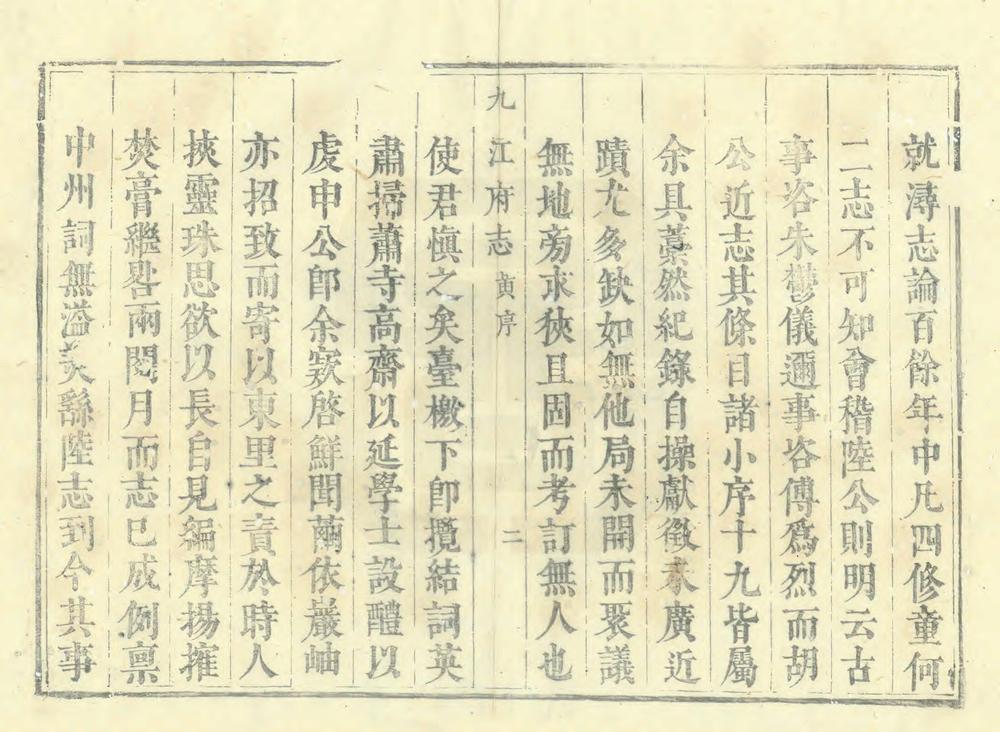 就潯志論百餘年中凡四修童何
二志不可知會稽陸公則明云古
事咨朱鬱儀邇事咨傅爲烈而胡
公近志其條目諸小序十九皆屬
余具藁然紀錄自操獻徵未廣近
蹟尤多缺如無他局未開而聚議
無地旁求狹且固而考訂無人也
九江府志 黄序 二
使君愼之矣臺檄下卽攬結詞英
肅掃蕭寺高齋以延學士設醴以
虔申公卽余欵啓鮮聞薾依巖岫
亦招致而寄以東里之責於時人
挾靈珠思欲以長自見編摩揚搉
焚膏繼晷兩閱月而志已成例禀
中州詞無溢美繇陸志到今其事